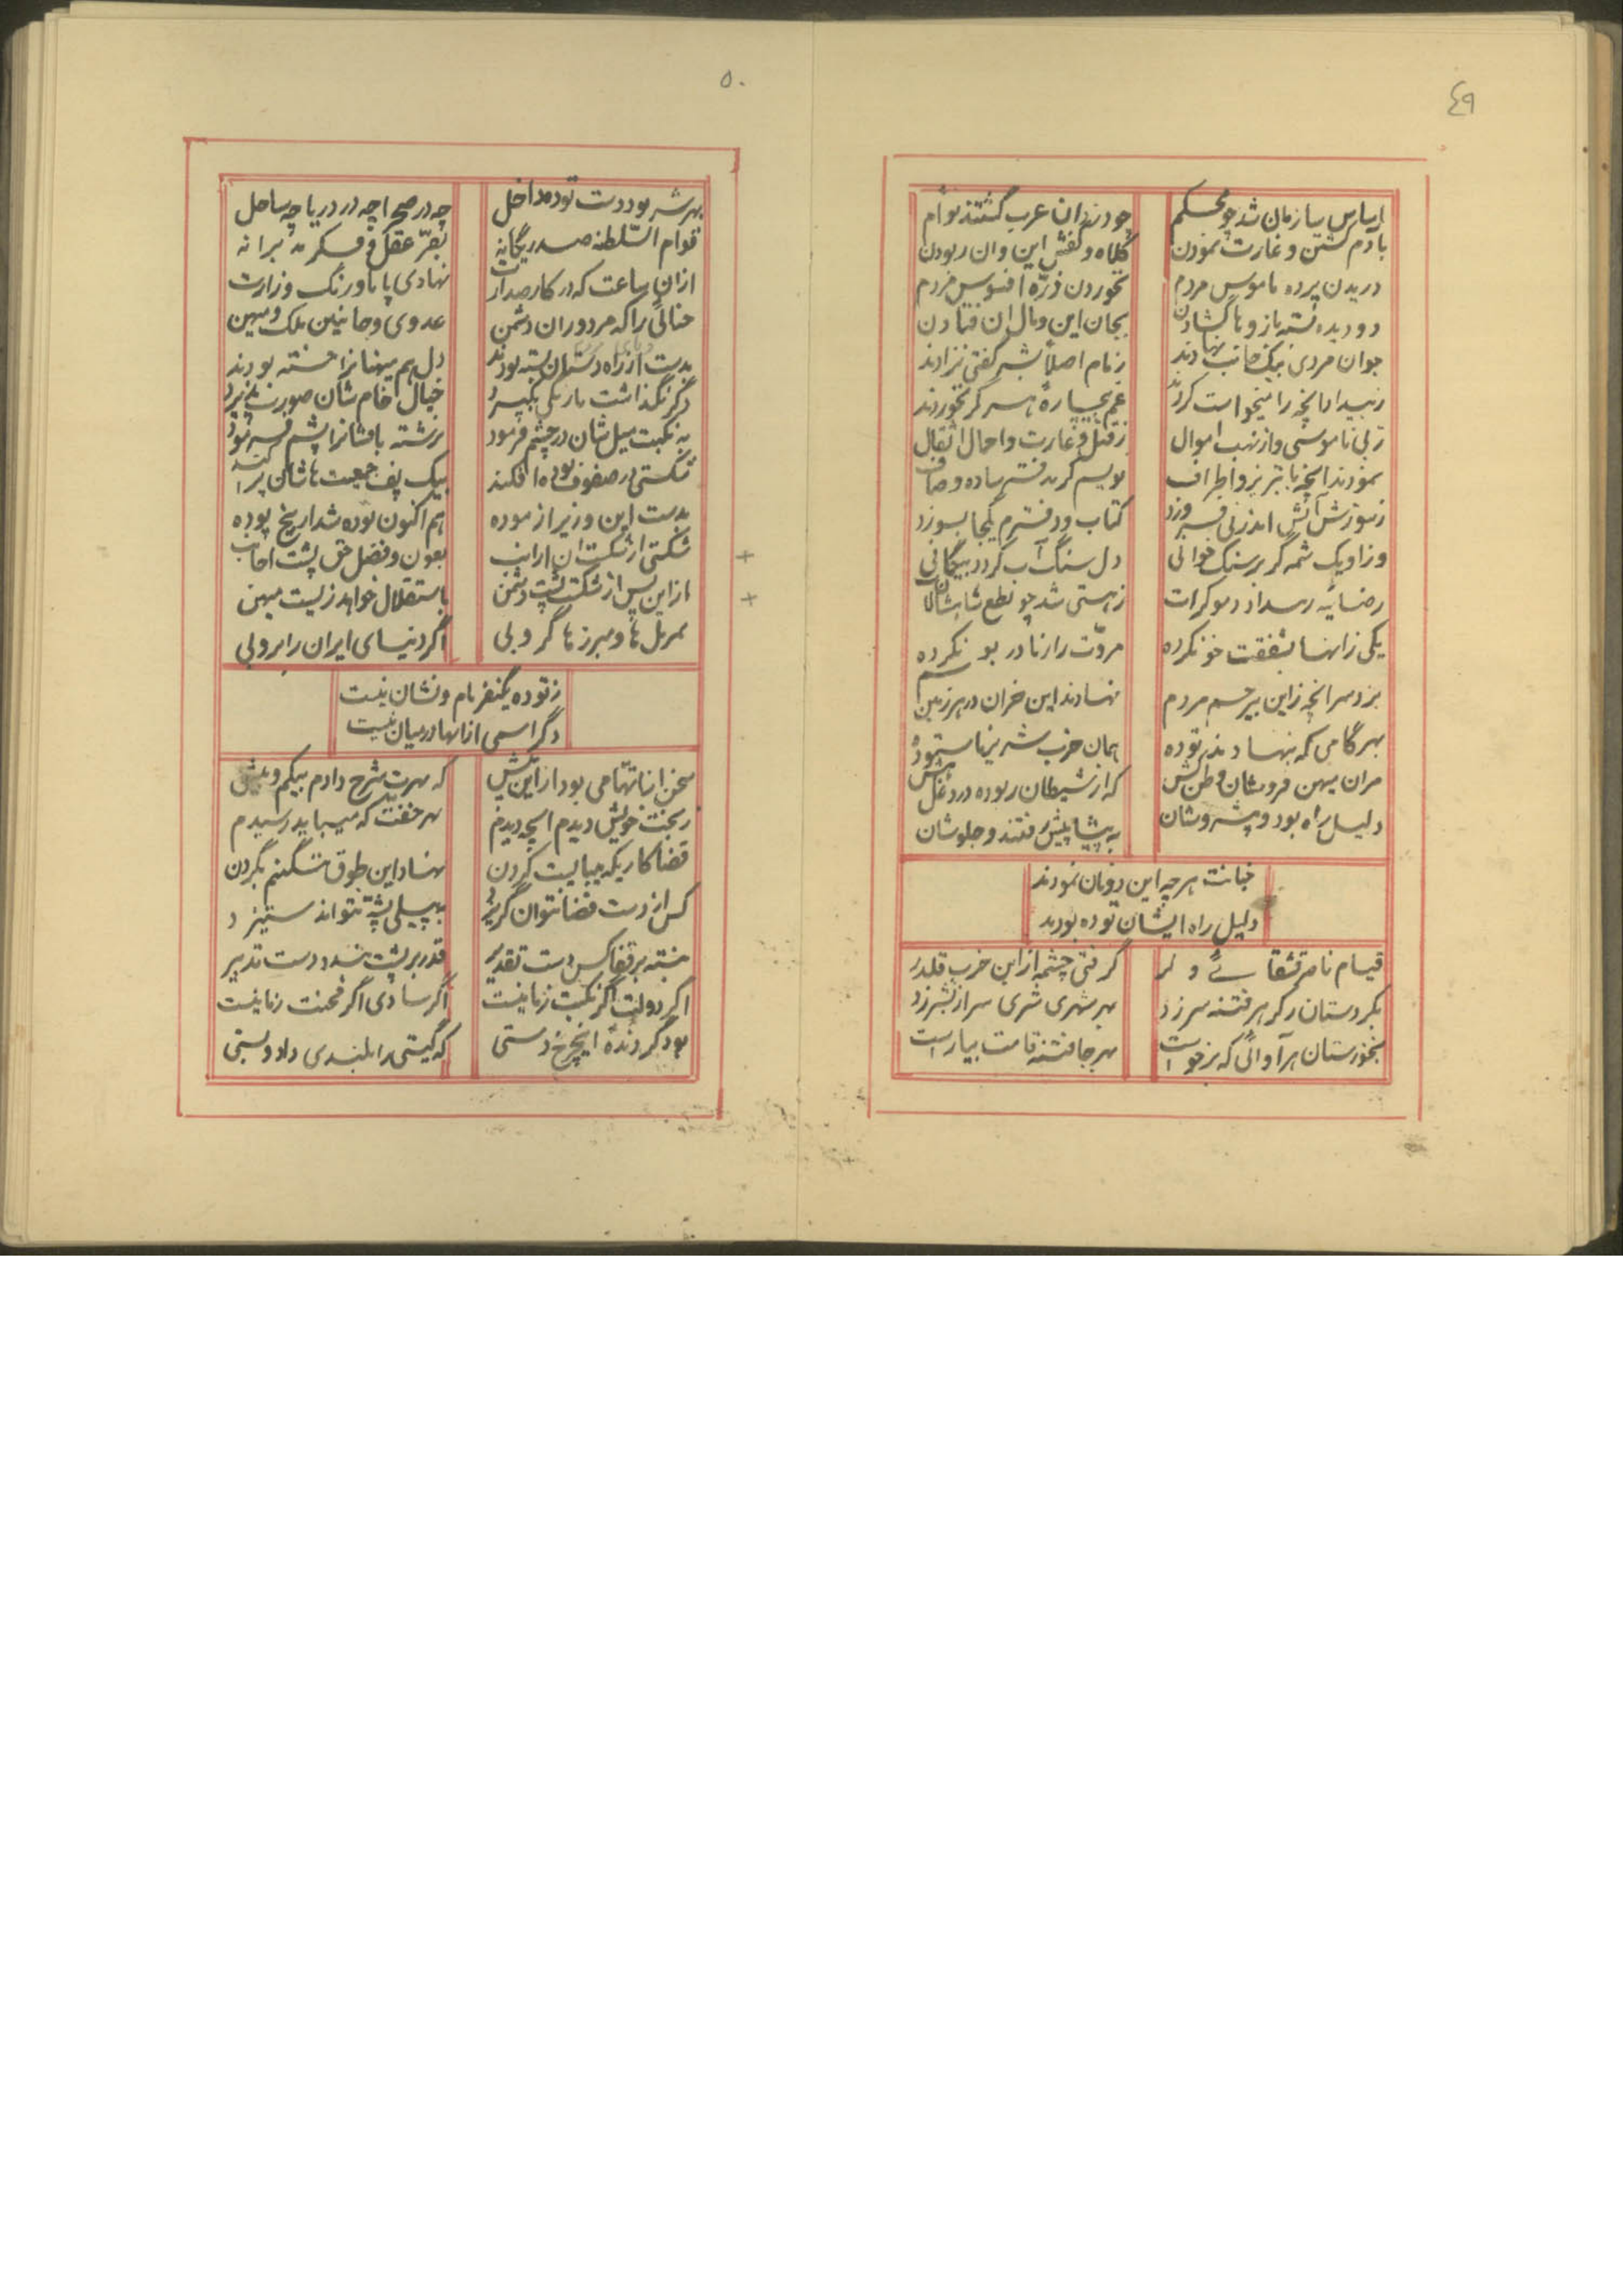 ٤٩
اساس سازمان شد چو محکم
چو دزدان عرب گشتند توأم
بآدم کشتن و غارت نمودن
کلاه و کفش این و ان ربودن
دریدن پرده ناموس مردم
نخوردن ذرّه افسوس مردم
دو دیده بسته بازو با گشادن
بجان این و مال ان فتادن
جوان مردی بیک جانب نهادند
زمام اصلاً بشر گفتی نزادند
ز بیداد انچه را میخواست کردند
غم بیچارهٔ هر گز نخوردند
ز بی ناموسی و از نهب اموال
ز قتل و غارت و احمال اثقال
نمودند انچه با تبریز و اطراف
نویسم گر به دفتر ساده و صاف
ز سوزش آتش اندر نی فروزد
کتاب و دفترم یکجا بسوزد
وز او یک شمه گر بر سنگ خوانی
دل سنگ آب گردد بیگمانی
رضائیه رسد از دموکرات
ز هستی شد چو نطع شاهشان مات
یکی زانها بشفقت خو نکرده
مروّت را زنا در بو نکرده
بزد سر انچه زاین بیرحم مردم
نهادند این خران در هر زمین سم
بهر گامی که بنهادند توده
همان حزب شریر ناستوده
مران میهن فروشان وطن کش
که از شیطان ربوده در دغل هش
دلیل راه بود و پیشروشان
به پیشاپیش رفتند و جلوشان
خیانت هر چه این دونان نمودند
دلیل راه ایشان توده بودند
قیام ناصر قشقائی و لر
گرفتی چشمه از این حزب قلدر
بکردستان دگر هر فتنه سر زد
بهر شهری شری سر از بشر زد
بخوزستان هر آوائی که برخواست
بهر جا فتنه قامت بیاراست
٥٠
بهر شر بود دست توده داخل
چه در صحرا چه در دریا چه ساحل
قوام السّلطنه صدر یگانه
بفرّ عقل و فکر مدبرانه
از ان ساعت که در کار صدارت
نهادی پا باورنگ وزارت
خیالی را که مزدوران دشمن
عدوی و خائنین ملک و میهن
بدست از راه دستان بسته بودند
دل هم میهنانرا خسته بودند
دگر نگذاشت تا رنگی بگیرد
خیال خام شان صورت پذیرد
به نکبت میل شان در چشم فرمود
برشته بافشانرا پشم فرمود
شکستی در صفوف توده افکند
بیک پف جمعیت هاشان پراکند
بدست این وزیر ازموده
هم اکنون توده شد تاریخ بوده
شکستی از شکست ان اراذل
بعون و فضل حق پشت اجانب
از این پس از شکست پشت دشمن
باستقلال خواهد زیست میهن
بمربل ها و مبرزها گر و بی
اگر دنیای ایران را بروبی
ز توده یکنفر نام و نشان نیست
دگر اسمی از انها در میان نیست
سخن انا تهامی بود از این پیش
که بهرت شرح دادم بیکم و بیش
ز بخت خویش دیدم انچه دیدم
بهر خفت که میباید رسیدم
قضا کاریکه میبایست کردن
نهاد این طوق ننگینم بگردن
کس از دست قضا نتوان گریزد
به پیلی پشّه نتواند ستیزد
نبسته بر قفا کس دست تقدیر
قدر بر پشت بندد دست تدبیر
اگر دولت اگر نکبت زمانیست
اگر شادی اگر محنت زمانیست
بود گردندهٔ اینچرخ دستی
که گیتی را بلندی داد و پستی